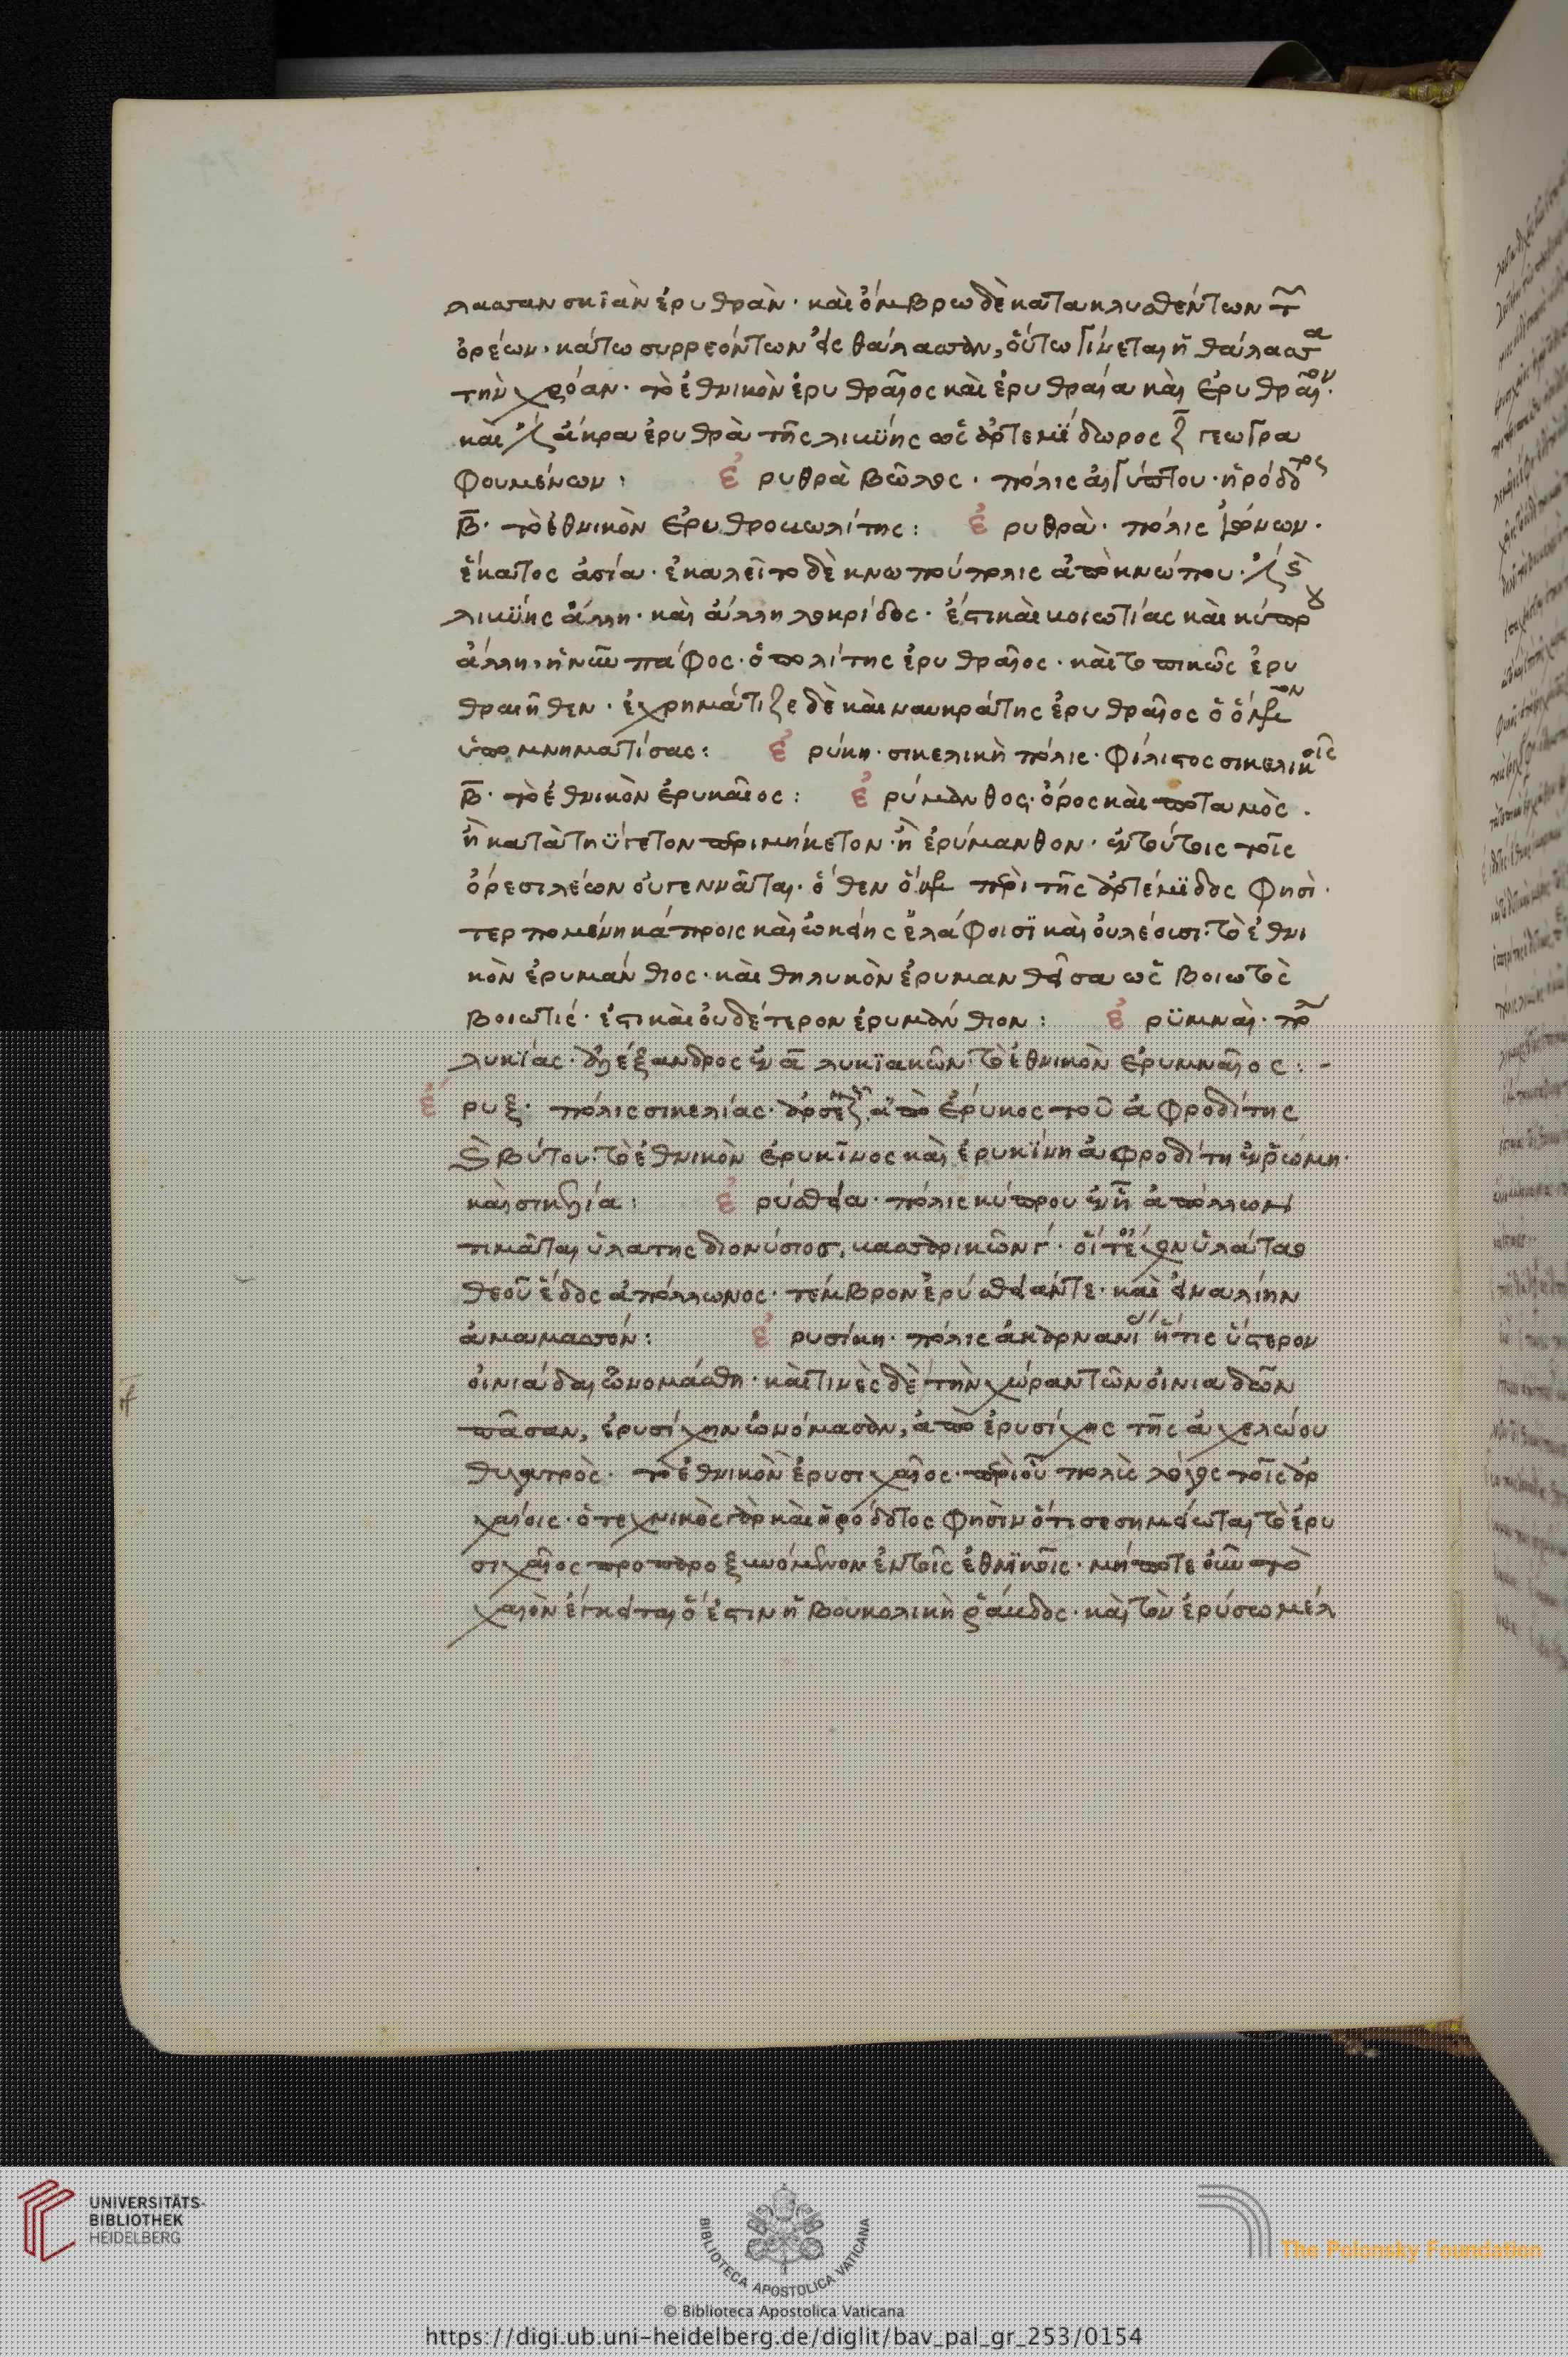 λασσαν σκιὰν ἐρυθρὰν· καὶ ὄμβρω δὲ κατακλυσθέντων τ~
ὀρέων· κάτω συρρεόντων εἰς θάλασσαν, οὕτω γίνεται ἡ θάλασσα
τὴν χρόαν· τὸ ἐθνικὸν ἐρυθραῖος καὶ ἐρυθραία καὶ ἐρυθραῖον·
καὶ ἄκρα ἐρυθρὰ τῆς λικΰης ὡς ἀρτεμΐδωρος ζ γεωγρα
φουμένων: ἐρυθρὰ βῶλος· πόλις αἰγύπτου· ἡρόδοτος
β· τὸ ἐθνικὸν ἐρυθροωλίτης: ἐρυθρὰ· πόλις ἰώνων·
ἑκατος ἀσία· ἐκαλεῖτο δὲ κνωπούπολις ἀπὸ κνώπου·
λικΰης ἄλλη· καὶ ἄλλη λοκρίδος· ἔστι καὶ κοιωτίας καὶ κύπρου
ἄλλη, ἡ νῦν πάφος· ὁ πολίτης ἐρυθραῖος· καὶ τοπικῶς ἐρυ
θραιῆθεν· ἐχρημάτιζε δὲ καὶ ναυκράτης ἐρυθραῖος ὁ ὅμηρον
ὑπομνηματίσας: ἐρύκη· σικελικὴ πόλις· φίλιστος σικελικοῖς
β· τὸ ἐθνικὸν ἐρυκαῖος: ἐρύμανθος· ὄρος καὶ ποταμὸς·
ἢ κατὰ τηΰγετον περιμήκετον· ἢ ἐρύμανθον· ἐν τούτοις τοῖς
ὄρεσι λέων οὐ γεννᾶται· ὅθεν ὅμηρος περὶ τῆς ἀρτέμϊδος φησὶ·
τερπομένη κάπροις καὶ ὠκείης ἐλάφοισϊ καὶ οὐ λέουσι· τὸ ἐθνι
κὸν ἐρυμάνθιος· καὶ θηλυκὸν ἐρυμανθεῖσα ὡς βοιωτὸς
βοιωτίς· ἔστι καὶ οὐδέτερον ἐρυμάνθιον: ἐρϋμναί· πό
λυκΐας· ἀλέξανδρος ἐν α λυκϊακῶν· τὸ ἐθνικὸν ἐρυμναῖος:-
ἔρυξ· πόλις σικελίας· ἀπὸ ἔρυκος τοῦ ἀφροδίτης
καὶ βύτου· τὸ ἐθνικὸν ἐρυκῖνος καὶ ἐρυκΐνη ἀφροδίτη ἐν ῥώμη·
καὶ σικελία: ἐρύσθεια· πόλις κύπρου ἐν ᾗ ἀπόλλων
τιμᾶται ὑλάτης διονύσιος, κασσαρικῶν γ· οἵ τ' εἶχον ὑλάταο
θεοῦ ἕδος ἀπόλλωνος· τέμβρον ἐρύσθειάν τε· καὶ εἰναλίην
ἀμαμασσόν: ἐρυσίκη· πόλις ἀκαρνανί ἥτις ὕστερον
οἰνιάδαι ὠνομάσθη· καὶ τινὲς δὲ τὴν χώραν τῶν οἰνιαδῶν
πᾶσαν, ἐρυσίχην ὠνόμασαν, ἀπὸ ἐρυσίχης τῆς ἀχελώου
θυγατρὸς· τὸ ἐθνικὸν ἐρυσιχαῖος· περὶ οὗ πολὺς λόγος τοῖς ἀρ
χαίοις· ὁ τεχνικὸς γὰρ καὶ ἡρόδοτος φησὶν ὅτι σεσημείωται τὸ ἐρυ
σιχαῖος προπαροξυνόμενον ἐν τοῖς ἐθνϊκοῖς· μήποτε οὖν τὸ
χαῖον ἔγκειται ὅ ἐστιν ἡ βουκολικὴ ῥάβδος· καὶ τὸν ἐρύσω μέλ
UNIVERSITÄTS-
BIBLIOTHEK
HEIDELBERG
BIBLIOTECA APOSTOLICA VATICANA
The Polonsky Foundation
© Biblioteca Apostolica Vaticana
https://digi.ub.uni-heidelberg.de/diglit/bav_pal_gr_253/0154